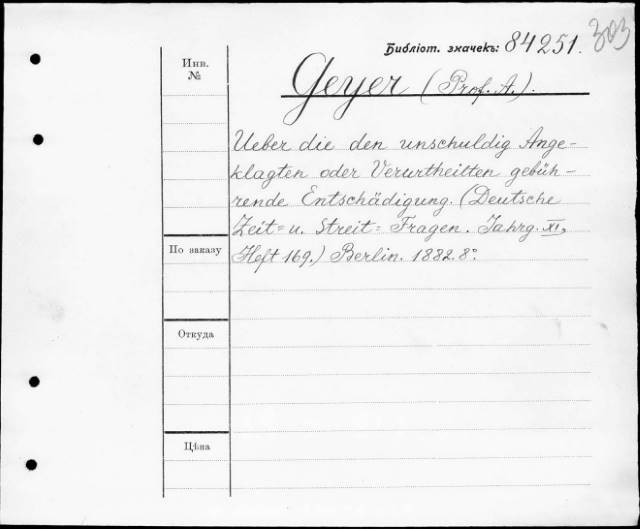 303
Библіот. значекъ: 84251.
Инв.
№
Geyer (Prof. A.).
Ueber die den unschuldig Ange-
klagten oder Verurtheilten gebüh-
rende Entschädigung. (Deutsche
Zeit= u. Streit= Fragen. Jahrg. XI,
По заказу
Heft 169.) Berlin. 1882. 8°.
Откуда
Цѣна